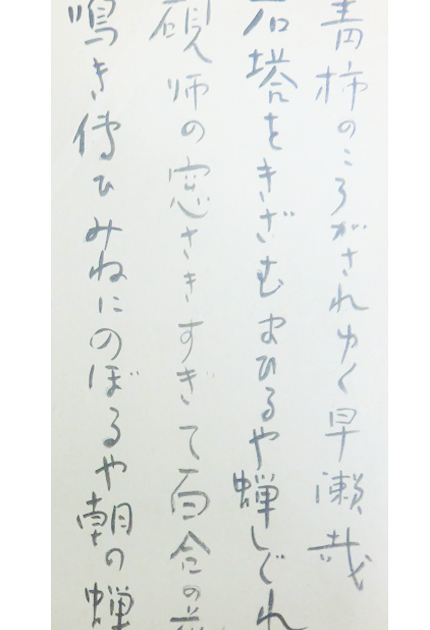 青柿のころがされゆく早瀬哉
石塔をきざむまひるや蝉しぐれ
硯師の窓さきすぎて百合の
鳴き傳ひみねにのぼるや朝の蝉